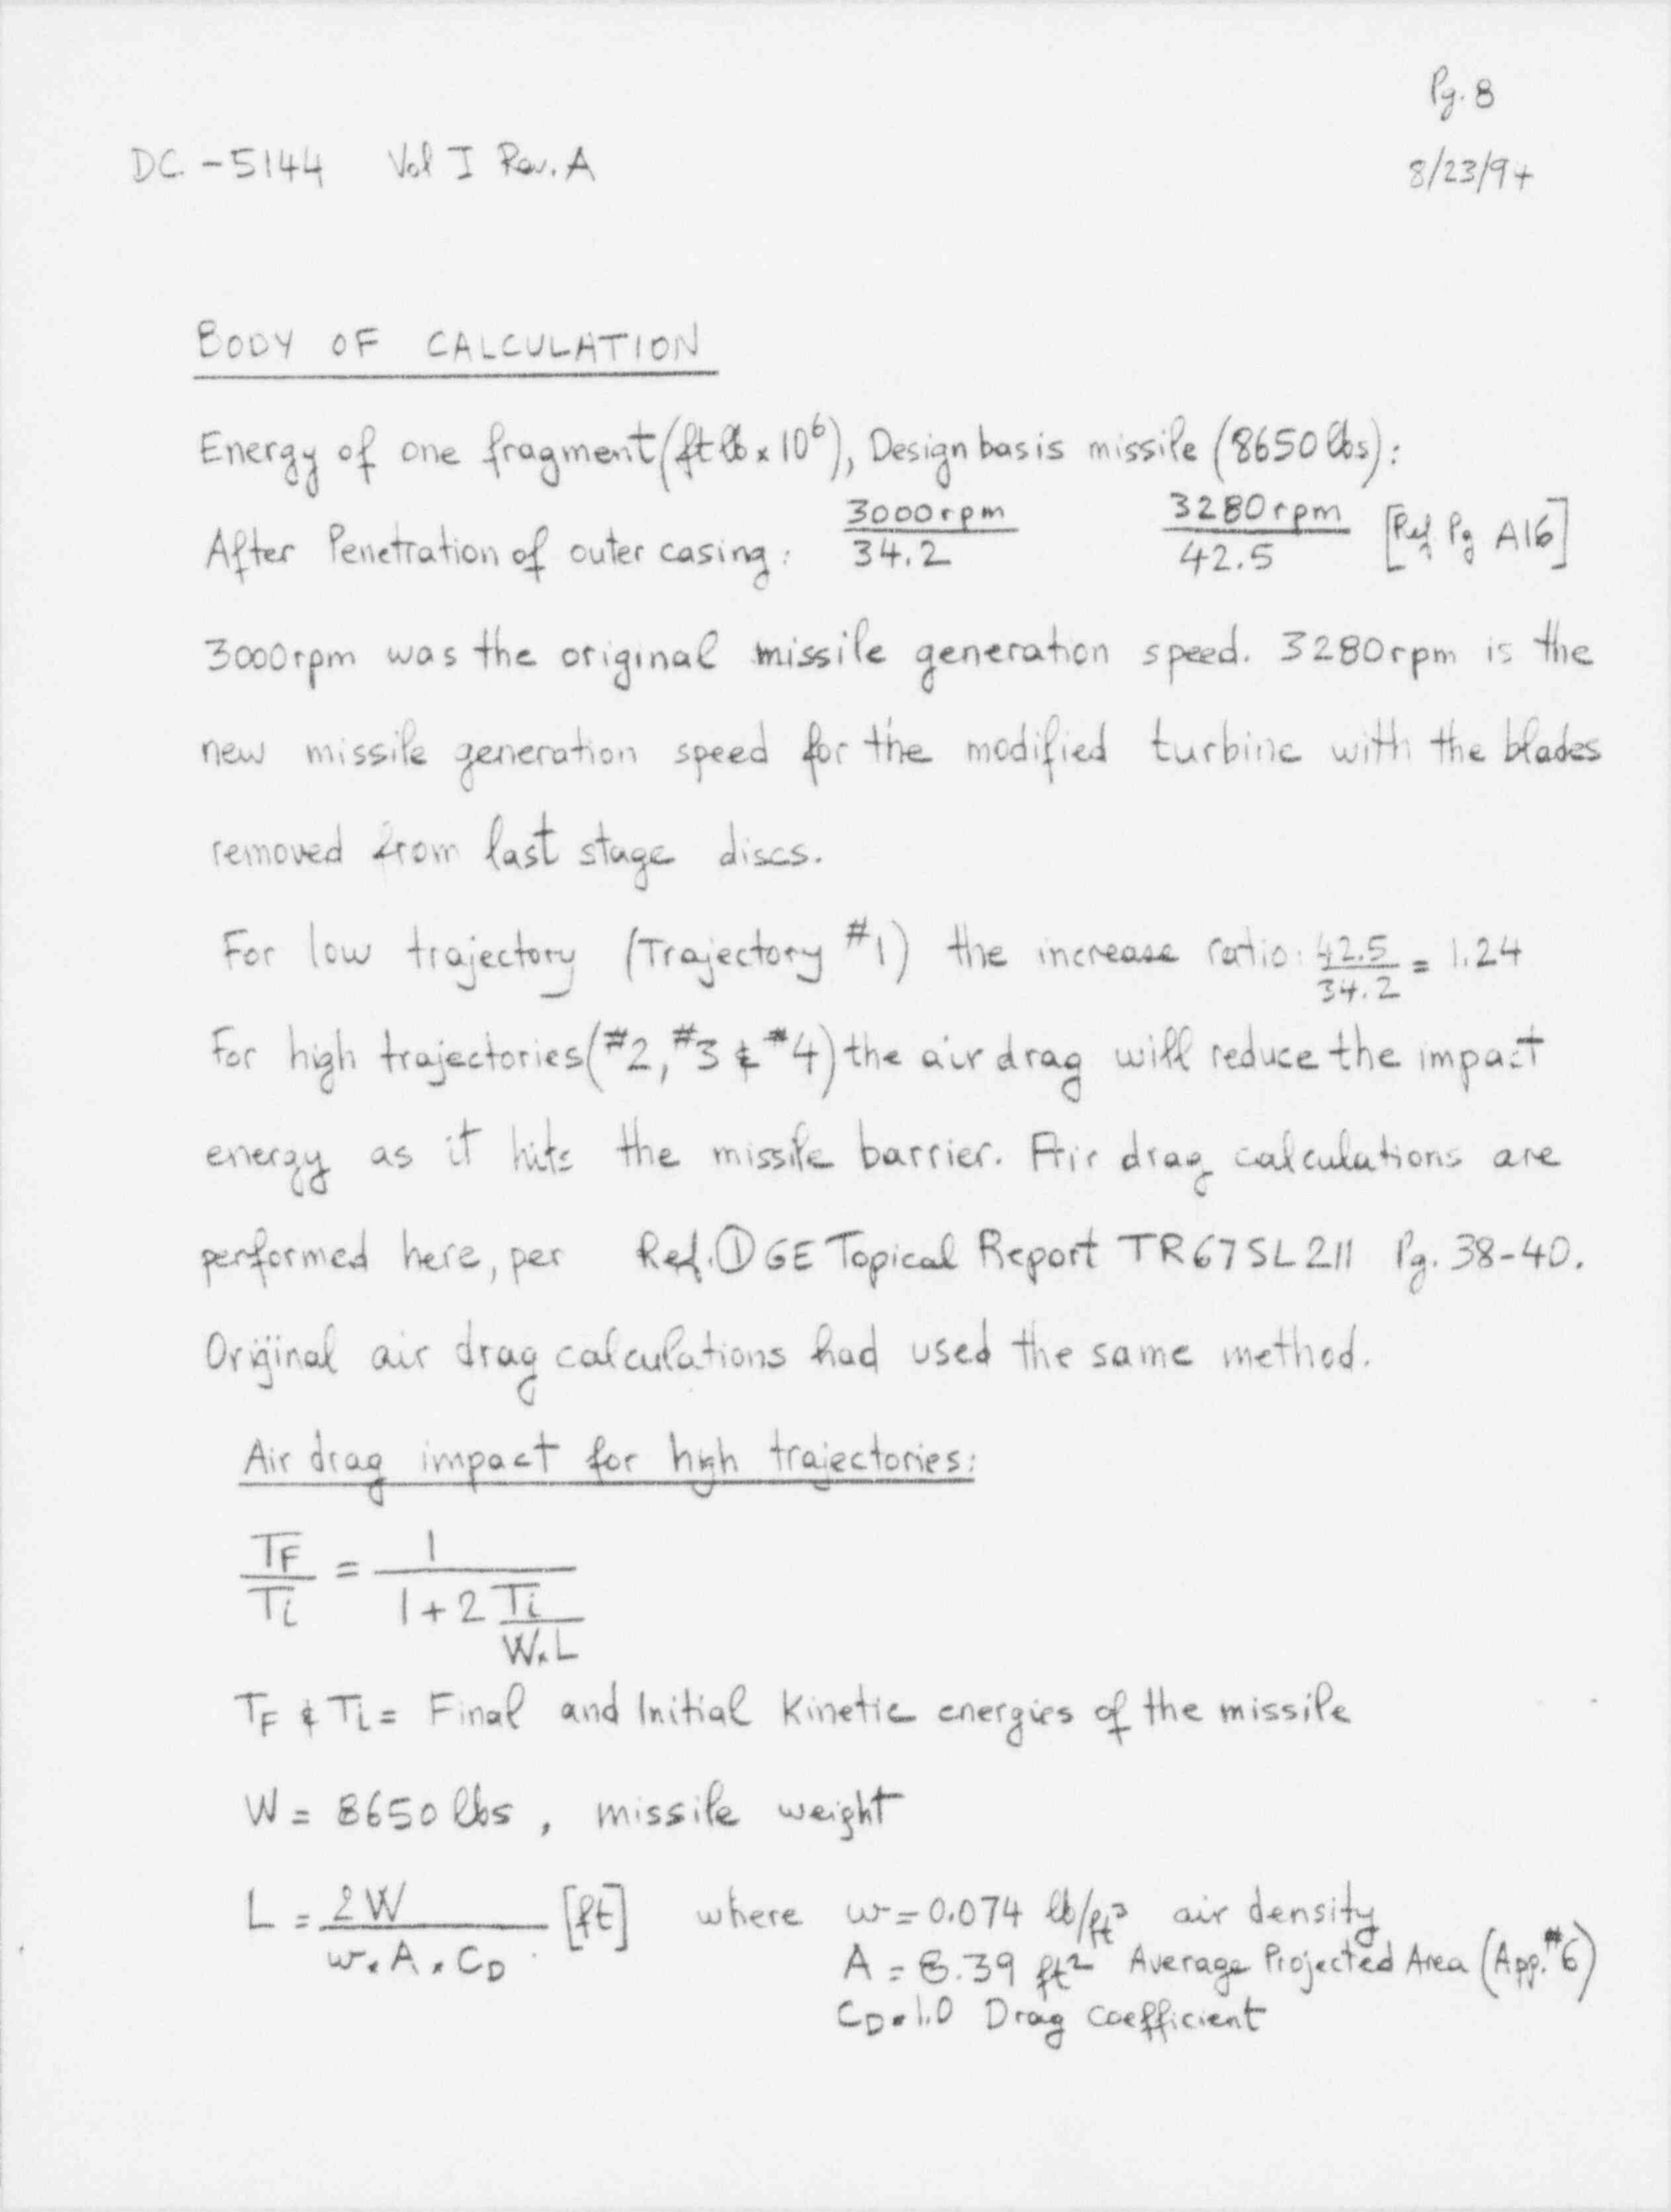 Pg. 8
DC-5144 Vol I Rev. A 8/23/94
BODY OF CALCULATION
Energy of one fragment (ft lb x 10⁶), Design basis missile (8650 lbs):
3000rpm 3280rpm [Ref Pg A16]
After Penetration of outer casing: 34.2 42.5
3000rpm was the original missile generation speed. 3280rpm is the
new missile generation speed for the modified turbine with the blades
removed from last stage discs.
For low trajectory (Trajectory #1) the increase ratio: 42.5/34.2 = 1.24
For high trajectories (#2, #3 & #4) the air drag will reduce the impact
energy as it hits the missile barrier. Air drag calculations are
performed here, per Ref. ① GE Topical Report TR67SL211 Pg. 38-40.
Original air drag calculations had used the same method.
Air drag impact for high trajectories:
TF/Ti = 1/(1 + 2 Ti/(W x L))
TF & Ti = Final and Initial Kinetic energies of the missile
W = 8650 lbs, missile weight
L = 2W/(w x A x CD) [ft] where w = 0.074 lb/ft³ air density
A = 8.39 ft² Average Projected Area (App. #6)
CD = 1.0 Drag coefficient